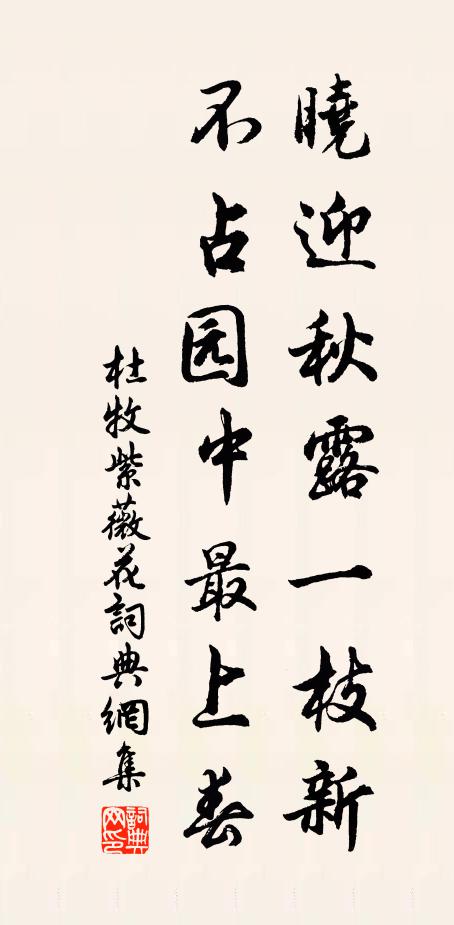 曉迎秋露一枝新
不占园中最上春
杜牧紫薇花詞典網集
詞典網印